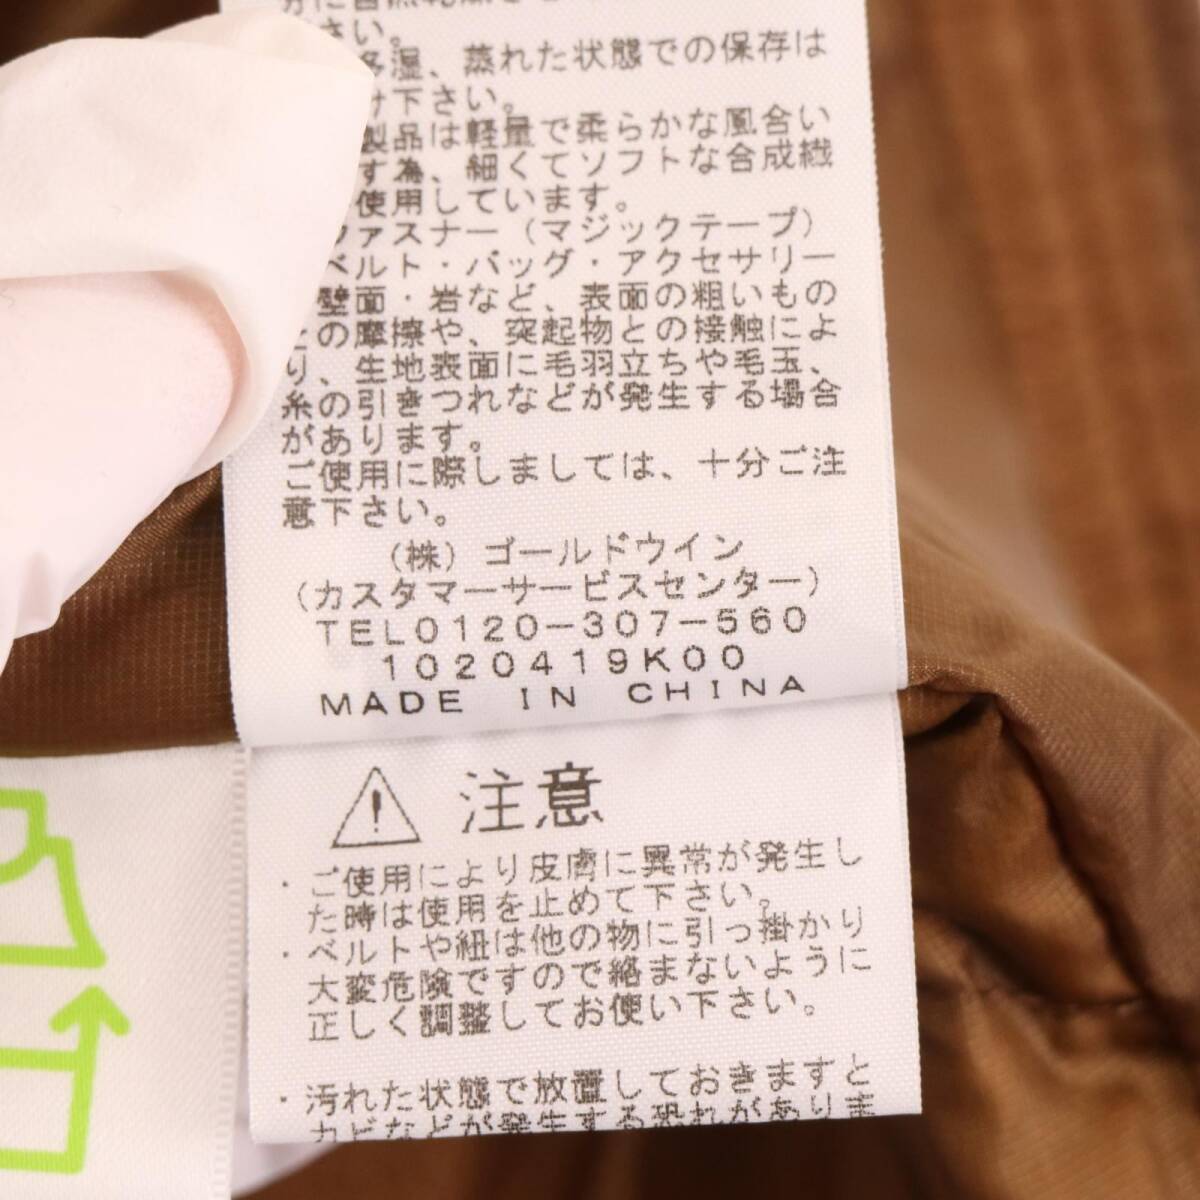 さい。
多湿、蒸れた状態での保存は
け下さい。
製品は軽量で柔らかな風合い
す為、細くてソフトな合成繊
使用しています。
ファスナー（マジックテープ）
ベルト・バッグ・アクセサリー
壁面・岩など、表面の粗いもの
との摩擦や、突起物との接触によ
り、生地表面に毛羽立ちや毛玉、
糸の引きつれなどが発生する場合
があります。
ご使用に際しましては、十分ご注
意下さい。
（株）ゴールドウイン
（カスタマーサービスセンター）
TEL0120-307-560
1020419K00
MADE IN CHINA
注意
・ご使用により皮膚に異常が発生し
た時は使用を止めて下さい。
・ベルトや紐は他の物に引っ掛かり
大変危険ですので絡まないように
正しく調整してお使い下さい。
・汚れた状態で放置しておきますと
カビなどが発生する恐れがありま